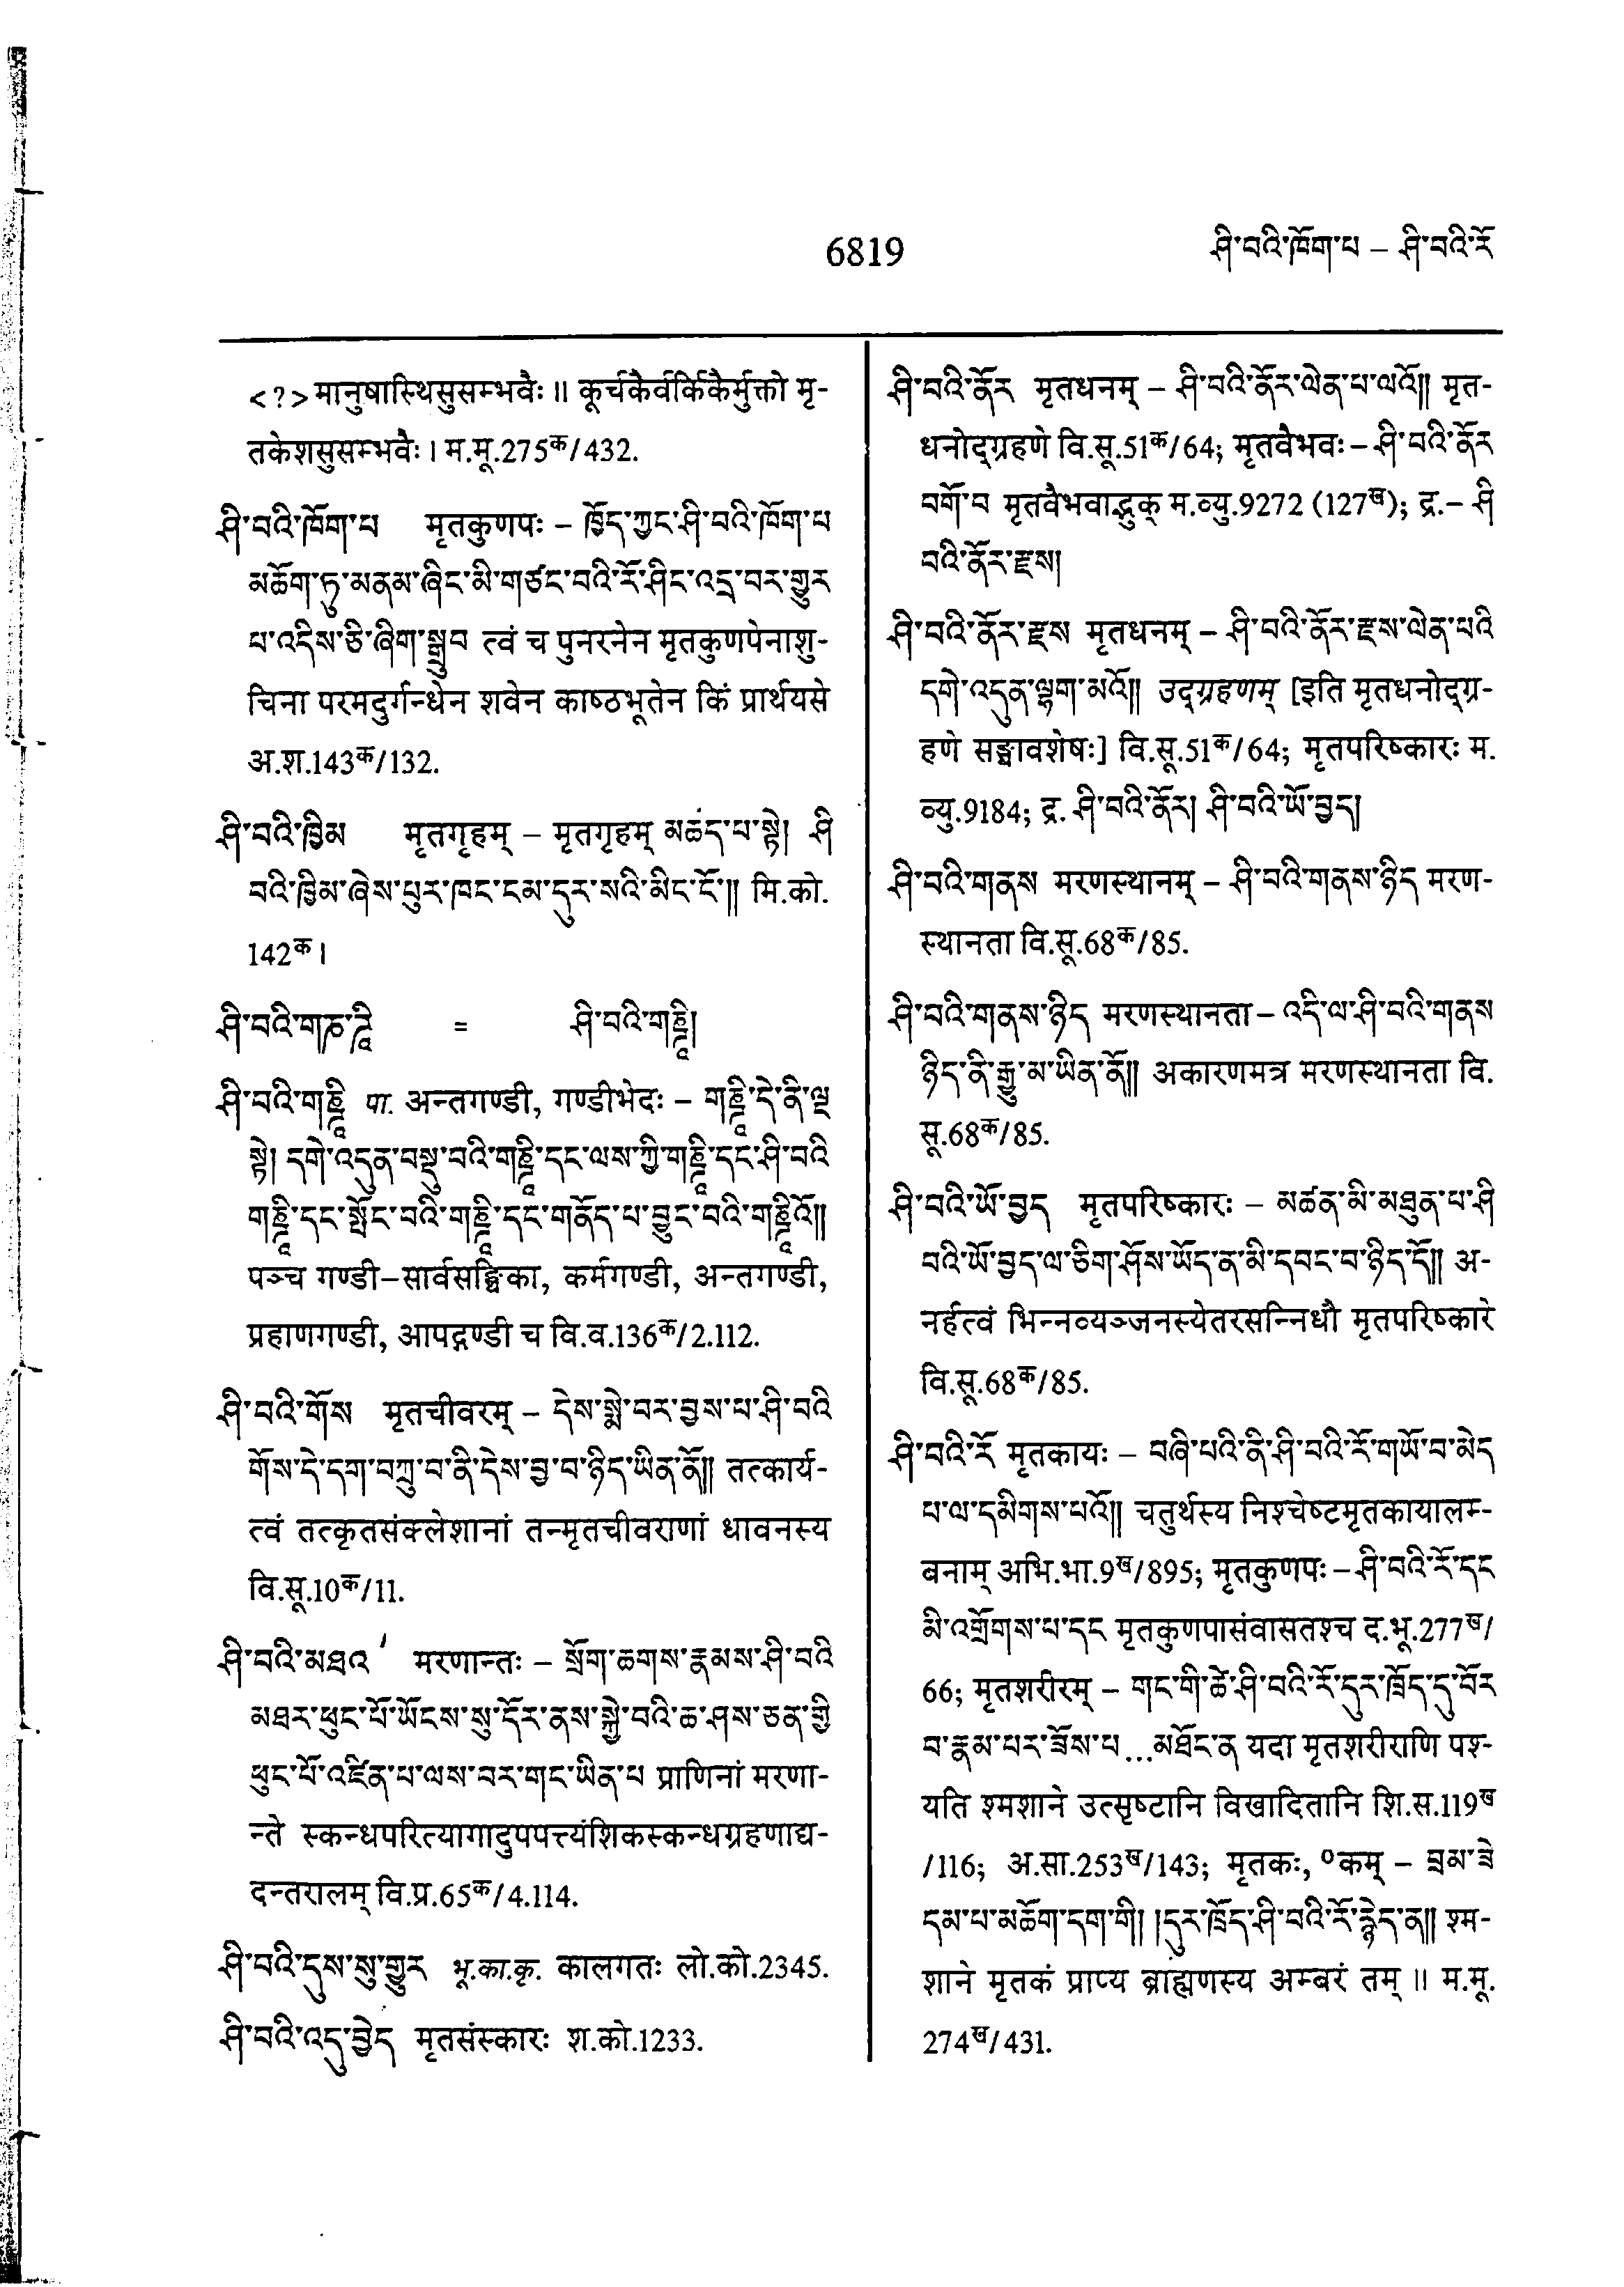 6819
ཤི་བའི་ཁོག་པ – ཤི་བའི་རོ
<?> मानुषास्थिसुसम्भवैः ॥ कूर्चकैर्वर्किकैर्मुक्तो मृ-
तकेशसुसम्भवैः । म.मू.275क/432.
ཤི་བའི་ཁོག་པ मृतकुणपः – ཁྱོད་ཀྱང་ཤི་བའི་ཁོག་པ
མཆོག་ཏུ་མནམ་ཞིང་མི་གཙང་བའི་རོ་ཤིང་འདྲ་བར་གྱུར
པ་འདིས་ཅི་ཞིག་སྒྲུབ त्वं च पुनरनेन मृतकुणपेनाशु-
चिना परमदुर्गन्धेन शवेन काष्ठभूतेन किं प्रार्थयसे
अ.श.143क/132.
ཤི་བའི་ཁྱིམ मृतगृहम् – मृतगृहम् མཆད་པ་སྟེ། ཤི
བའི་ཁྱིམ་ཞེས་པུར་ཁང་ངམ་དུར་སའི་མིང་ངོ་॥ मि.को.
142क ।
ཤི་བའི་གཎ་ཌཱི = ཤི་བའི་གཎྜཱི།
ཤི་བའི་གཎྜཱི पा. अन्तगण्डी, गण्डीभेदः – གཎྜཱི་དེ་ནི་ལྔ
སྟེ། དགེ་འདུན་བསྡུ་བའི་གཎྜཱི་དང་ལས་ཀྱི་གཎྜཱི་དང་ཤི་བའི
གཎྜཱི་དང་སྤོང་བའི་གཎྜཱི་དང་གནོད་པ་བྱུང་བའི་གཎྜཱིའོ༎
पञ्च गण्डी–सार्वसङ्घिका, कर्मगण्डी, अन्तगण्डी,
प्रहाणगण्डी, आपद्गण्डी च वि.व.136क/2.112.
ཤི་བའི་གོས मृतचीवरम् – དེས་སྨེ་བར་བྱས་པ་ཤི་བའི
གོས་དེ་དག་བཀྲུ་བ་ནི་དེས་བྱ་བ་ཉིད་ཡིན་ནོ༎ तत्कार्य-
त्वं तत्कृतसंक्लेशानां तन्मृतचीवराणां धावनस्य
वि.सू.10क/11.
ཤི་བའི་མཐའ मरणान्तः – སྲོག་ཆགས་རྣམས་ཤི་བའི
མཐར་ཕུང་པོ་ཡོངས་སུ་དོར་ནས་སྐྱེ་བའི་ཆ་ཤས་ཅན་གྱི
ཕུང་པོ་འཛིན་པ་ལས་བར་གང་ཡིན་པ प्राणिनां मरणा-
न्ते स्कन्धपरित्यागादुपपत्त्यंशिकस्कन्धग्रहणाद्य-
दन्तरालम् वि.प्र.65क/4.114.
ཤི་བའི་དུས་སུ་གྱུར भू.का.कृ. कालगतः लो.को.2345.
ཤི་བའི་འདུ་བྱེད मृतसंस्कारः श.को.1233.
ཤི་བའི་ནོར मृतधनम् – ཤི་བའི་ནོར་ལེན་པ་ལའོ༎ मृत-
धनोद्ग्रहणे वि.सू.51क/64; मृतवैभवः – ཤི་བའི་ནོར
བགོ་བ मृतवैभवाद्भुक् म.व्यु.9272 (127ख); द्र.– ཤི
བའི་ནོར་རྫས།
ཤི་བའི་ནོར་རྫས मृतधनम् – ཤི་བའི་ནོར་རྫས་ལེན་པའི
དགེ་འདུན་ལྷག་མའོ༎ उद्ग्रहणम् [इति मृतधनोद्ग्र-
हणे सङ्घावशेषः] वि.सू.51क/64; मृतपरिष्कारः म.
व्यु.9184; द्र. ཤི་བའི་ནོར། ཤི་བའི་ཡོ་བྱད།
ཤི་བའི་གནས मरणस्थानम् – ཤི་བའི་གནས་ཉིད मरण-
स्थानता वि.सू.68क/85.
ཤི་བའི་གནས་ཉིད मरणस्थानता – འདི་ལ་ཤི་བའི་གནས
ཉིད་ནི་རྒྱུ་མ་ཡིན་ནོ༎ अकारणमत्र मरणस्थानता वि.
सू.68क/85.
ཤི་བའི་ཡོ་བྱད मृतपरिष्कारः – མཚན་མི་མཐུན་པ་ཤི
བའི་ཡོ་བྱད་ལ་ཅིག་ཤོས་ཡོད་ན་མི་དབང་བ་ཉིད་དོ༎ अ-
नर्हत्वं भिन्नव्यञ्जनस्येतरसन्निधौ मृतपरिष्कारे
वि.सू.68क/85.
ཤི་བའི་རོ मृतकायः – བཞི་པའི་ནི་ཤི་བའི་རོ་གཡོ་བ་མེད
པ་ལ་དམིགས་པའོ༎ चतुर्थस्य निश्चेष्टमृतकायालम्-
बनाम् अभि.भा.9ख/895; मृतकुणपः – ཤི་བའི་རོ་དང
མི་འགྲོགས་པ་དང मृतकुणपासंवासतश्च द.भू.277ख/
66; मृतशरीरम् – གང་གི་ཚེ་ཤི་བའི་རོ་དུར་ཁྲོད་དུ་བོར
བ་རྣམ་པར་ཟོས་པ ... མཐོང་ན यदा मृतशरीराणि पश्-
यति श्मशाने उत्सृष्टानि विखादितानि शि.स.119ख
/116; अ.सा.253ख/143; मृतकः, ०कम् – བྲམ་ཟེ
དམ་པ་མཆོག་དག་གི། །དུར་ཁྲོད་ཤི་བའི་རོ་རྙེད་ན༎ श्म-
शाने मृतकं प्राप्य ब्राह्मणस्य अम्बरं तम् ॥ म.मू.
274ख/431.